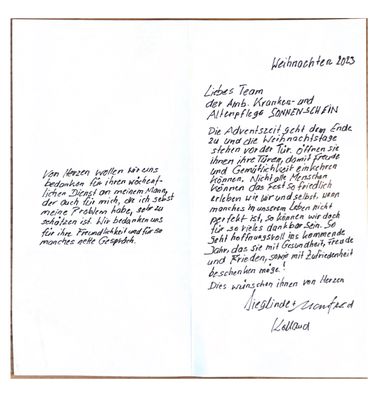 Von Herzen wollen wir uns
bedanken für ihren wöchent-
lichen Dienst an meinem Mann,
der auch für mich, da ich selbst
meine Problem habe, sehr zu
schätzen ist. Wir bedanken uns
für ihre Freundlichkeit und für so
manches nette Gespräch.
Weihnachten 2023
Liebes Team
der Amb. Kranken- und
Altenpflege SONNENSCHEIN
Die Adventszeit geht dem Ende
zu und die Weihnachtstage
stehen vor der Tür. Öffnen sie
ihnen ihre Türen, damit Freude
und Gemütlichkeit einkehren
können. Nicht alle Menschen
können das Fest so friedlich
erleben wie wir und selbst, wenn
manches in unserem Leben nicht
perfekt ist, so können wir doch
für so vieles dankbar sein. So
geht hoffnungsvoll ins kommende
Jahr, das sie mit Gesundheit, Freude
und Frieden, sowie mit Zufriedenheit
beschenken möge!
Dies wünschen ihnen von Herzen
Sieglinde + Manfred